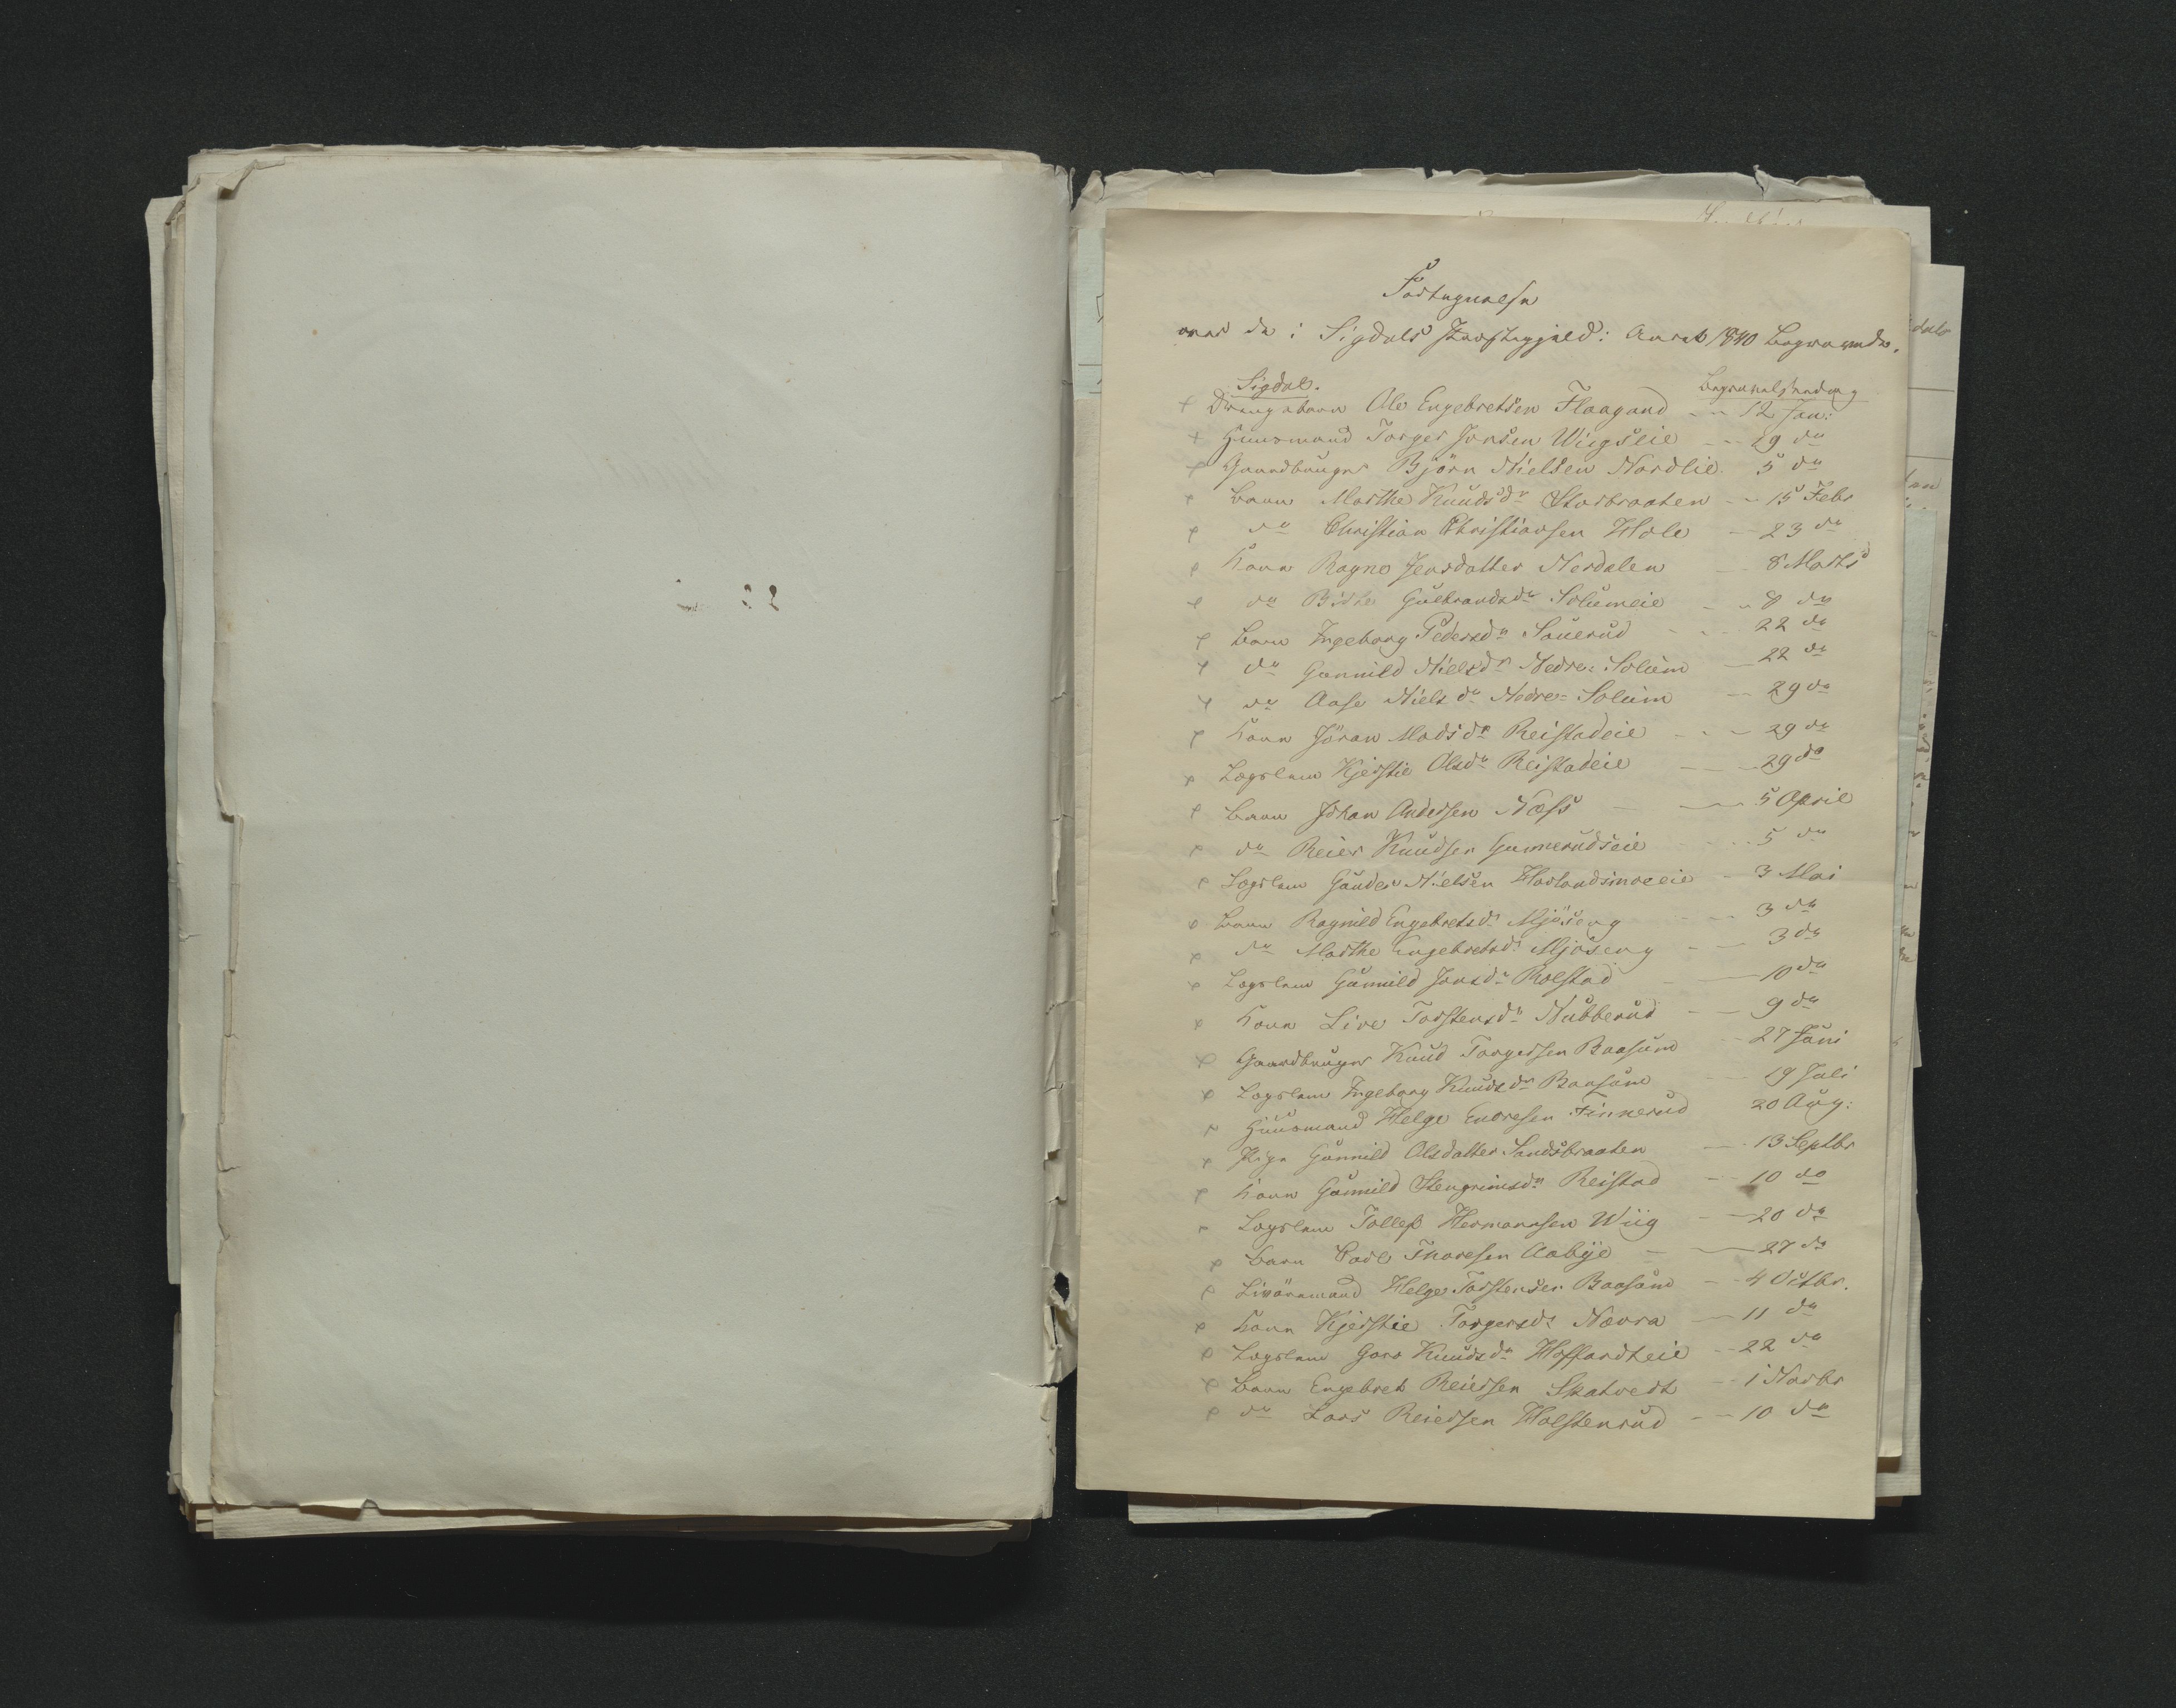 Fortegnelse
over de i Sigdals Præstegjeld i Aaret 1840 Begravede.
Sigdal. Begravelsesdag
Drengebarn Ole Engebretsen Flaagand 12 Jan:
Huusmand Torger Jonsen Wiigseie 29 do
Gaardbruger Björn Nielsen Nordlie 5 do
Barn Marthe Knudsdr Storbraaten 15 Febr
do Christian Christiansen Hole 23 do
Kone Ragne Jensdatter Nerdalen 8 Marts
do Birthe Gulbrandsdr Solumeie 8 do
Barn Ingeborg Pedersdr Souerud 22 do
do Gunnild Nielsdr Nedre-Solum 22 do
do Aase Nielsdr Nedre-Solum 29 do
Kone Jöran Madsdr Reistadeie 29 do
Lægslem Kjerstie Olsdr Reistadeie 29 do
Barn Johan Andersen Næss 5 April
do Reier Knudsen Gunnerudseie 5 do
Lægslem Gunder Nielsen Hovlandsmoeeie 3 Mai
Barn Ragnild Engebretsdr Mjöseng 3 do
do Marthe Engebretsdr Mjöseng 3 do
Lægslem Gunnild Jonsdr Rolstad 10 do
Kone Live Torstensdr Nubberud 9 do
Gaardbruger Knud Torgersen Baasum 27 Juni
Lægslem Ingeborg Knudsdr Baasum 19 Juli
Huusmand Helge Endresen Finnerud 20 Aug:
Pige Gunnild Olsdatter Sandsbraaten 13 Septbr
Kone Gunnild Stengrimsdr Reistad 10 do
Lægslem Tollef Hermansen Wiig 20 do
Barn Carl Thoresen Aabye 27 do
Livöresmand Helge Torstensen Baasum 4 Octbr.
Kone Kjerstie Torgersdr Nævra 11 do
Lægslem Goro Knudsdr Hoffardteie 22 do
Barn Engebret Reiersen Skatvedt 1 Novbr
do Lars Reiersen Holstenrud 10 do